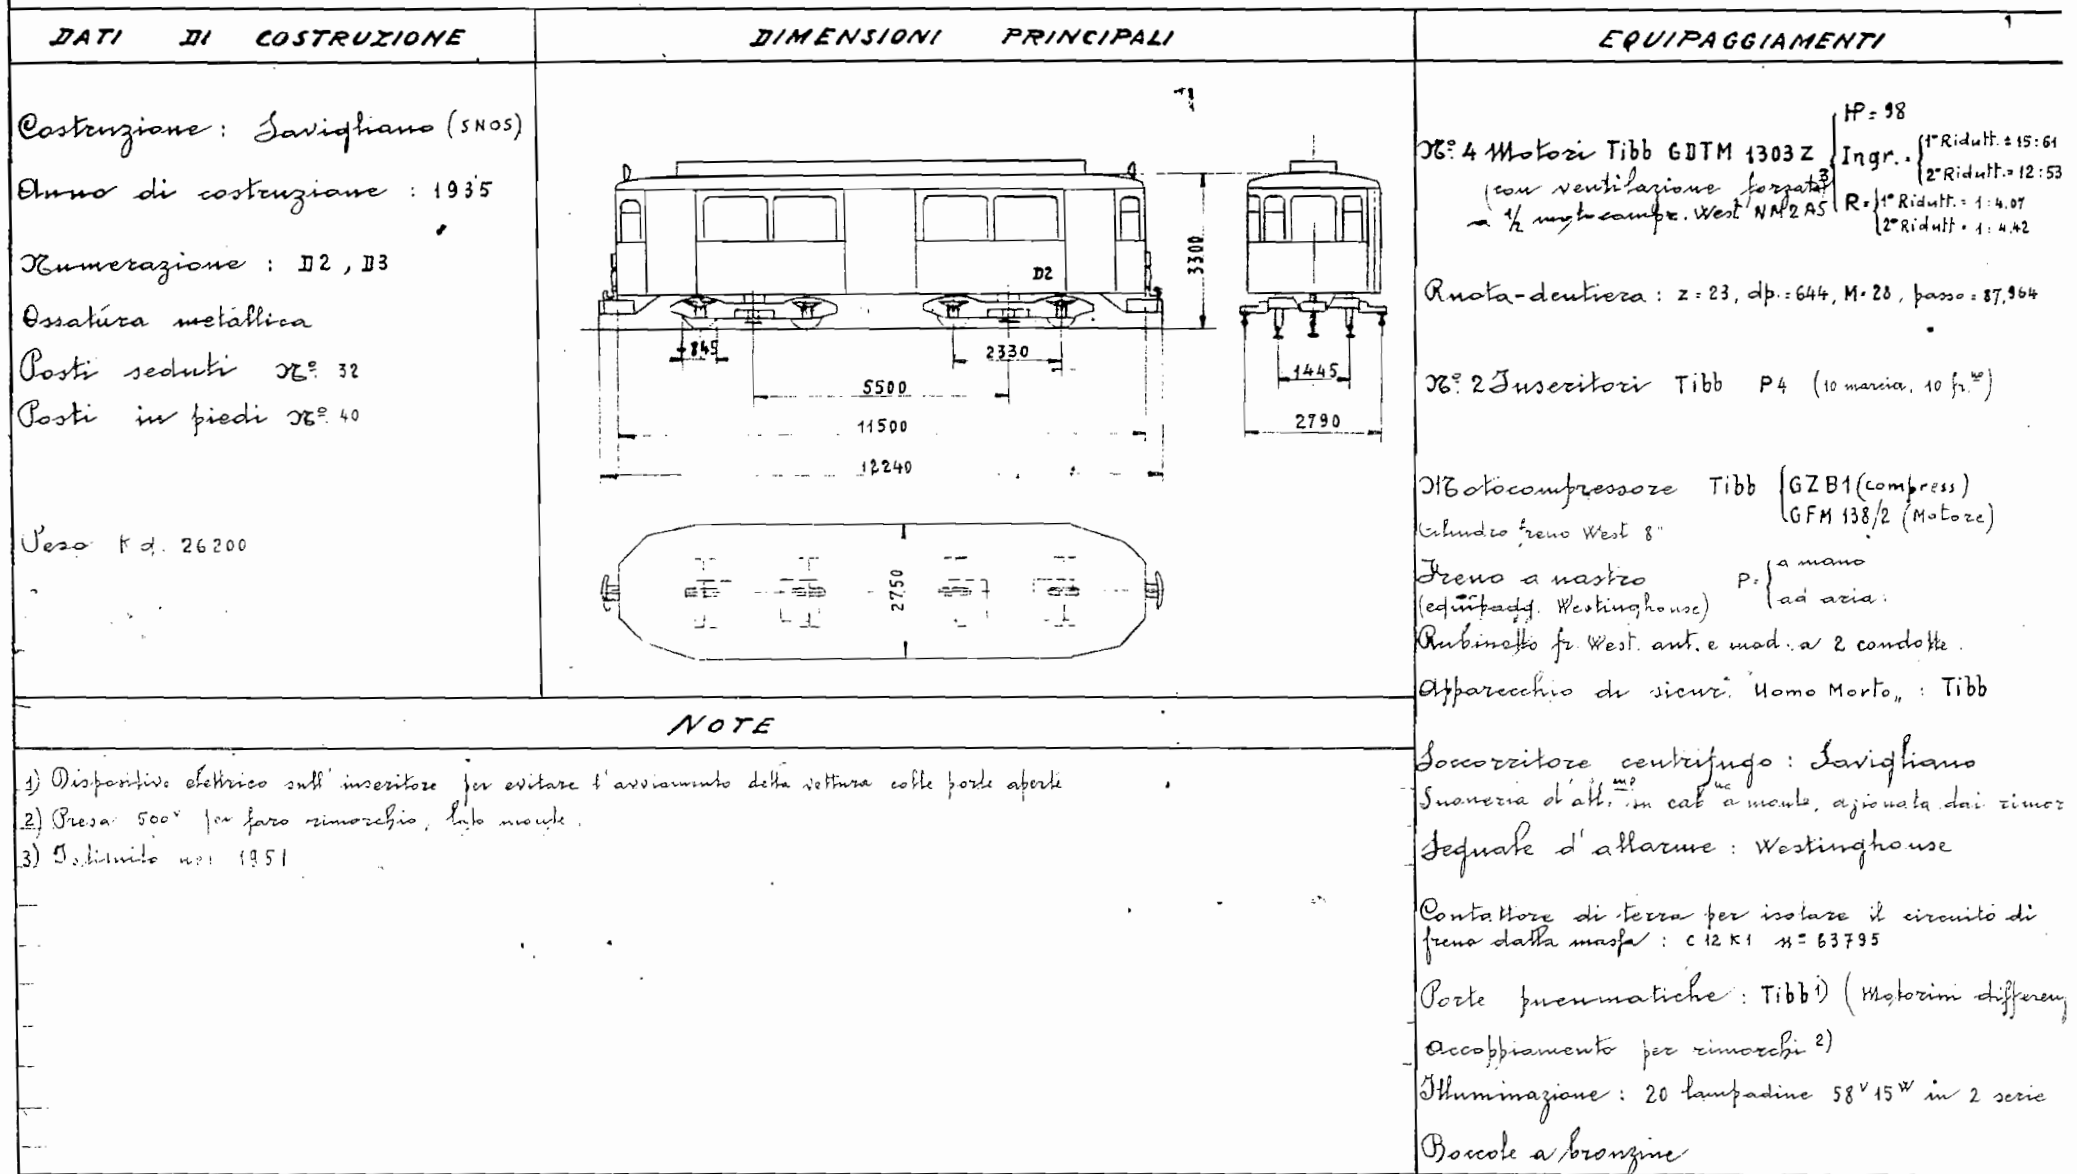 DATI DI COSTRUZIONE
Costruzione : Savigliano (SNOS)
Anno di costruzione : 1935
Numerazione : D2 , D3
Ossatura metallica
Posti seduti Nº 32
Posti in piedi Nº 40
Peso Kg. 26200
DIMENSIONI PRINCIPALI
D2
3300
845
2330
5500
11500
12240
1445
2790
2750
EQUIPAGGIAMENTI
Nº 4 Motori Tibb GDTM 1303 Z
(con ventilazione forzata) 3
a ½ compr. West NM2AS
HP = 98
Ingr. =
1º Ridutt. = 15:61
2º Ridutt. = 12:53
R =
1º Ridutt. = 1:4.07
2º Ridutt. = 1:4.42
Ruota-dentiera : z = 23, dp. = 644, M = 28, passo = 87,964
Nº 2 Inseritori Tibb P4 (10 marcia, 10 fr.)
Motocompressore Tibb
GZB1 (compress)
GFM 138/2 (Motore)
Cilindro freno West 8"
Freno a nastro
(equipagg. Westinghouse)
P.
a mano
ad aria.
Rubinetto fr. West. ant. e mod. a 2 condotte.
Apparecchio di sicur. Uomo Morto„ : Tibb
Soccorritore centrifugo : Savigliano
Suoneria d'all. in cab a monte, azionata dai rimor
Segnale d'allarme : Westinghouse
Contattore di terra per isolare il circuito di
freno dalla massa : C 12 K1 nº 63795
Porte pneumatiche : Tibb 1) (Motorini differenz
Accoppiamento per rimorchi 2)
Illuminazione : 20 lampadine 58V 15W in 2 serie
Boccole a bronzine
NOTE
1) Dispositivo elettrico sull'inseritore per evitare l'avviamento della vettura colle porte aperte
2) Presa 500V per faro rimorchio, lato monte.
3) nel 1951